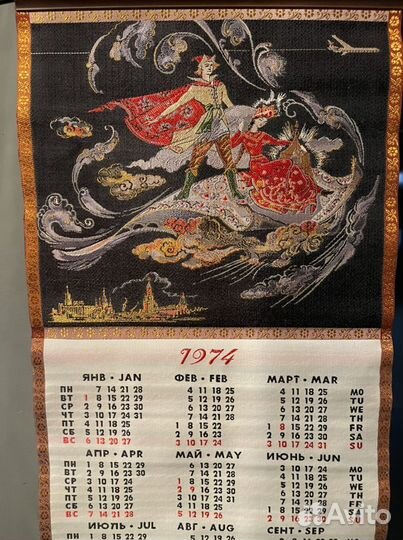 1974
ЯНВ · JAN ФЕВ · FEB МАРТ · MAR
ПН 7 14 21 28 4 11 18 25 4 11 18 25 MO
ВТ 1 8 15 22 29 5 12 19 26 5 12 19 26 TU
СР 2 9 16 23 30 6 13 20 27 6 13 20 27 WE
ЧТ 3 10 17 24 31 7 14 21 28 7 14 21 28 TH
ПТ 4 11 18 25 1 8 15 22 1 8 15 22 29 FR
СБ 5 12 19 26 2 9 16 23 2 9 16 23 30 SA
ВС 6 13 20 27 3 10 17 24 3 10 17 24 31 SU
АПР · APR МАЙ · MAY ИЮНЬ · JUN
ПН 1 8 15 22 29 6 13 20 27 3 10 17 24 MO
ВТ 2 9 16 23 30 7 14 21 28 4 11 18 25 TU
СР 3 10 17 24 1 8 15 22 29 5 12 19 26 WE
ЧТ 4 11 18 25 2 9 16 23 30 6 13 20 27 TH
ПТ 5 12 19 26 3 10 17 24 31 7 14 21 28 FR
СБ 6 13 20 27 4 11 18 25 1 8 15 22 29 SA
ВС 7 14 21 28 5 12 19 26 2 9 16 23 30 SU
ИЮЛЬ · JUL АВГ · AUG СЕНТ · SEP
Avito